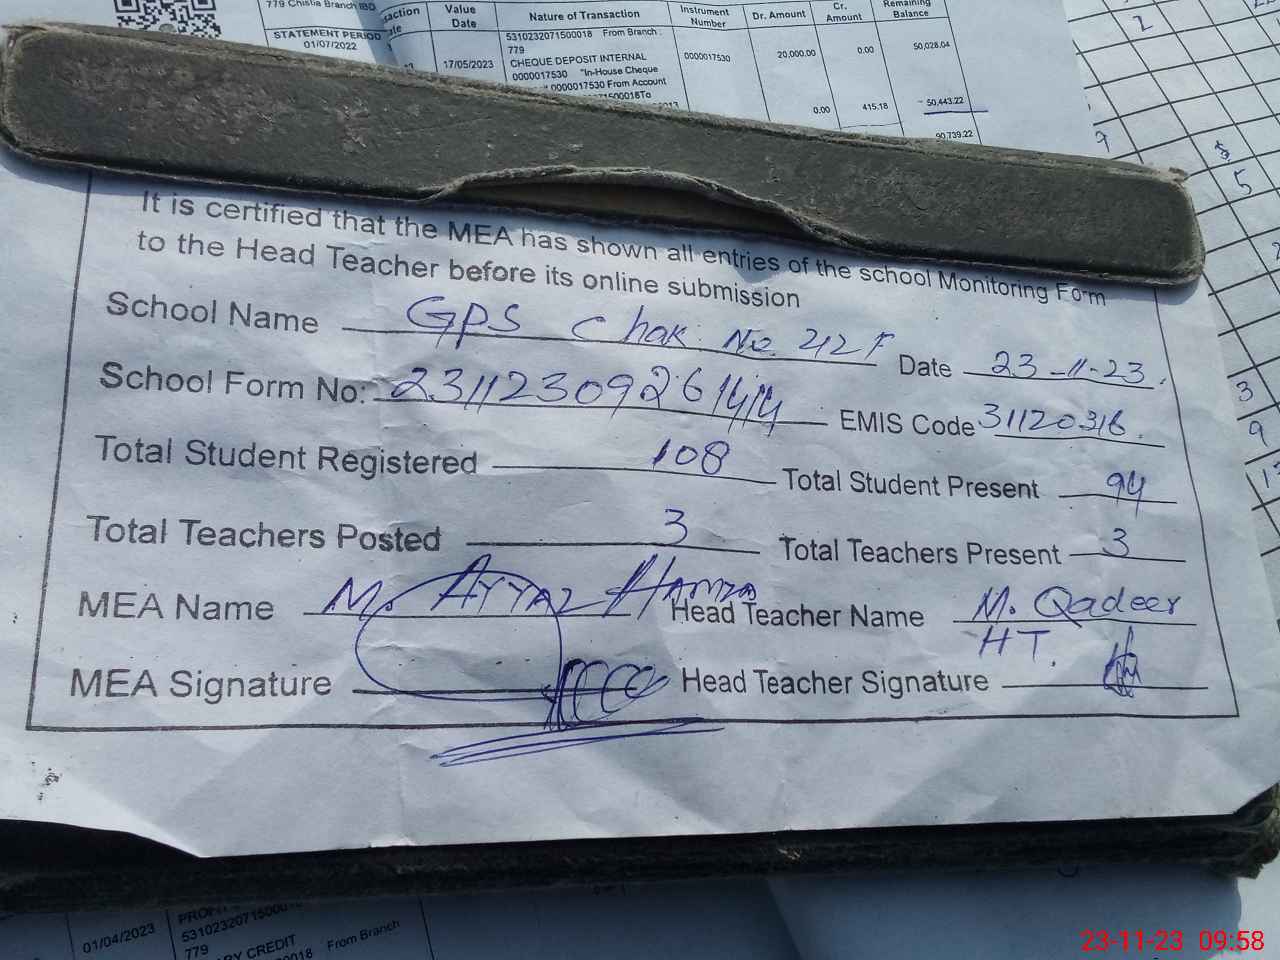 779 Chistia Branch IBD
STATEMENT PERIOD
01/07/2022
Value Date
Nature of Transaction
Instrument Number
Dr. Amount
Cr. Amount
Remaining Balance
5310232071500018 From Branch :
779
17/05/2023 CHEQUE DEPOSIT INTERNAL 0000017530 20,000.00 0.00 50,028.04
0000017530 "In-House Cheque
0000017530 From Account
0.00 415.18 50,443.22
90,739.22
It is certified that the MEA has shown all entries of the school Monitoring Form
to the Head Teacher before its online submission
School Name GPS Chak No. 212 F Date 23-11-23
School Form No: EMIS Code 31120316
Total Student Registered 108 Total Student Present 94
Total Teachers Posted 3 Total Teachers Present 3
MEA Name M. Ayyaz Hamza Head Teacher Name M. Qadeer
HT.
MEA Signature Head Teacher Signature
01/04/2023
5310232071500018
779
From Branch
23-11-23 09:58